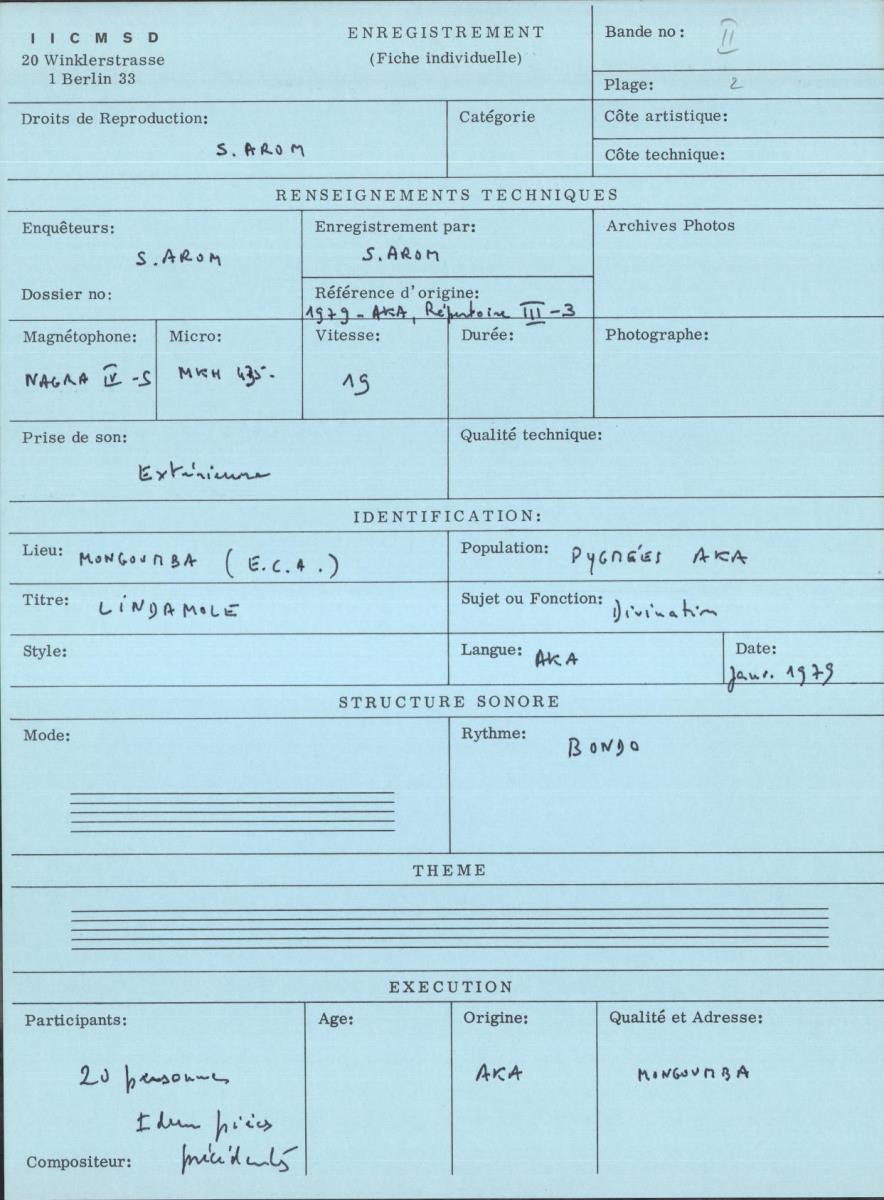 I I C M S D
20 Winklerstrasse
1 Berlin 33
ENREGISTREMENT
(Fiche individuelle)
Bande no: II
Plage: 2
Droits de Reproduction:
S. AROM
Catégorie
Côte artistique:
Côte technique:
RENSEIGNEMENTS TECHNIQUES
Enquêteurs:
S. AROM
Dossier no:
Enregistrement par:
S. AROM
Référence d'origine:
1979 - AKA, Répertoire III - 3
Archives Photos
Magnétophone:
NAGRA IV - S
Micro:
MKH 435.
Vitesse:
19
Durée:
Photographe:
Prise de son:
Extérieure
Qualité technique:
IDENTIFICATION:
Lieu: MONGOUMBA (E.C.A.)
Population: PYGMÉES AKA
Titre: LINDAMOLE
Sujet ou Fonction: Divination
Style:
Langue: AKA
Date:
Janv. 1979
STRUCTURE SONORE
Mode:
Rythme:
BONDO
THEME
EXECUTION
Participants:
20 personnes
Idem pièces
précédents
Compositeur:
Age:
Origine:
AKA
Qualité et Adresse:
MONGOUMBA